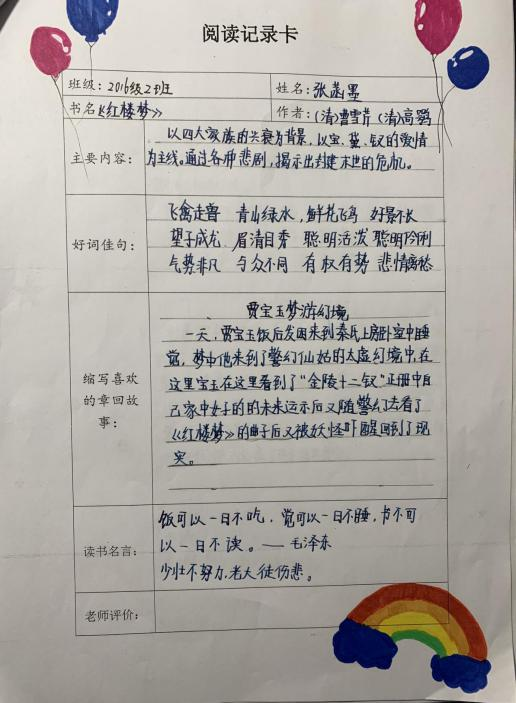 阅读记录卡
班级：2016级2班 姓名：张菡墨
书名《红楼梦》 作者：(清)曹雪芹 (清)高鹗
主要内容：
以四大家族的兴衰为背景，以宝、黛、钗的爱情
为主线。通过各种悲剧，揭示出封建末世的危机。
好词佳句：
飞禽走兽 青山绿水，鲜花飞鸟 好景不长
望子成龙 眉清目秀 聪明活泼 聪明伶俐
气势非凡 与众不同 有权有势 悲情离愁
缩写喜欢
的章回故
事：
贾宝玉梦游幻境
一天，贾宝玉饭后发困来到秦氏上房卧室中睡
觉，梦中他来到了警幻仙姑的太虚幻境中，在
这里宝玉在这里看到了“金陵十二钗”正册中自
己家中女子的的未来运示后又随警幻去看了
《红楼梦》的曲子后又被妖怪吓醒回到了现
实。
读书名言：
饭可以一日不吃，觉可以一日不睡，书不可
以一日不读。——毛泽东
少壮不努力，老大徒伤悲。
老师评价：